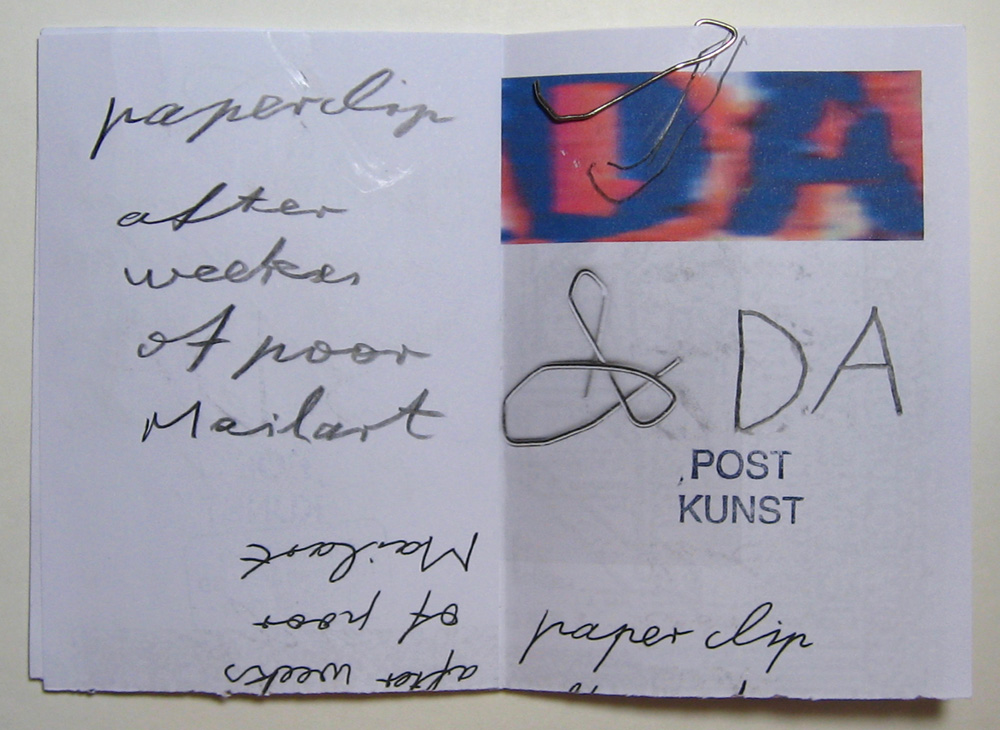 paperclip
after
weeks
of poor
Mailart
Mailart
of poor
after weeks
DA
& DA
POST
KUNST
paper clip